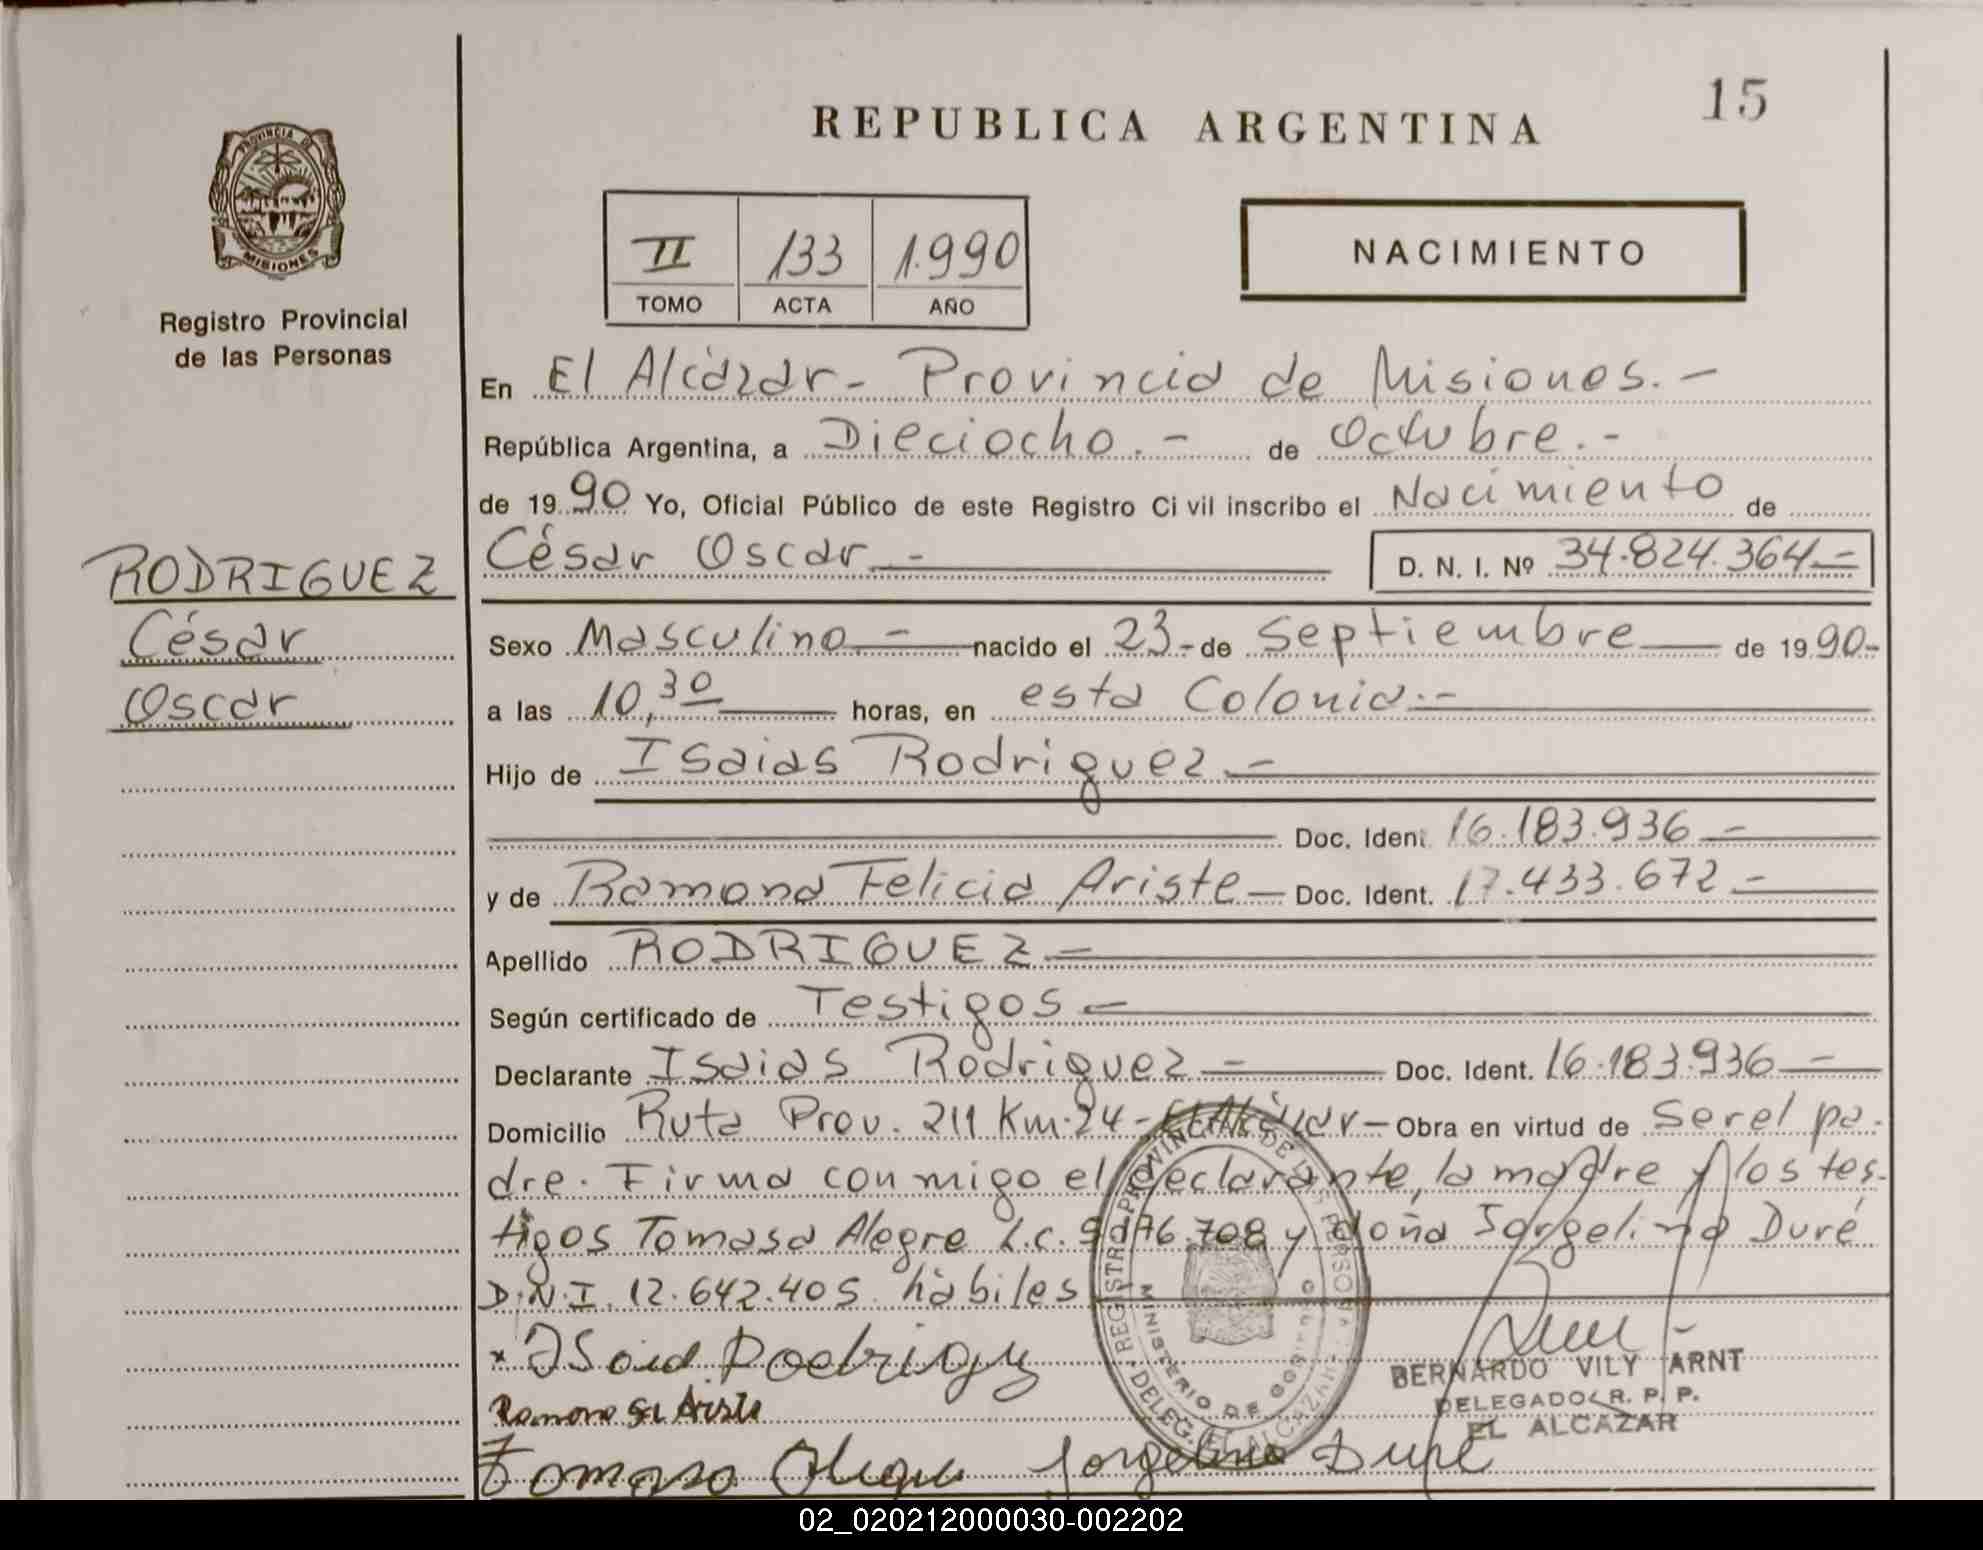 15
REPUBLICA ARGENTINA
PROVINCIA DE
MISIONES
Registro Provincial
de las Personas
II 133 1.990
TOMO ACTA AÑO
NACIMIENTO
En El Alcázar - Provincia de Misiones. -
República Argentina, a Dieciocho. - de Octubre. -
de 1990 Yo, Oficial Público de este Registro Civil inscribo el Nacimiento de
César Oscar - D. N. I. Nº 34.824.364 -
RODRIGUEZ
César
Oscar
Sexo Masculino - nacido el 23 - de Septiembre de 1990 -
a las 10,30 horas, en esta Colonia. -
Hijo de Isaias Rodriguez -
Doc. Ident. 16.183.936 -
y de Ramona Felicia Ariste - Doc. Ident. 17.433.672 -
Apellido RODRIGUEZ -
Según certificado de Testigos -
Declarante Isaias Rodriguez - Doc. Ident. 16.183.936 -
Domicilio Ruta Prov. 211 Km. 24 - El Alcázar - Obra en virtud de Ser el pa-
dre. Firma conmigo el declarante, la madre y los tes-
tigos Tomasa Alegre L.C. 9.176.708 y doña Jorgelina Duré
D.N.I. 12.642.405 hábiles
REGISTRO PROVINCIAL DE LAS PERSONAS
MINISTERIO DE GOBIERNO
DELEG. EL ALCAZAR
BERNARDO VILY ARNT
DELEGADO R. P. P.
EL ALCAZAR
Ramona Ariste
Jorgelina Duré
02_020212000030-002202